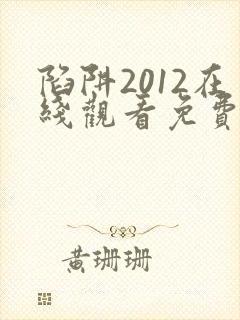 陷阱2012在
綫觀看免費
黄珊珊